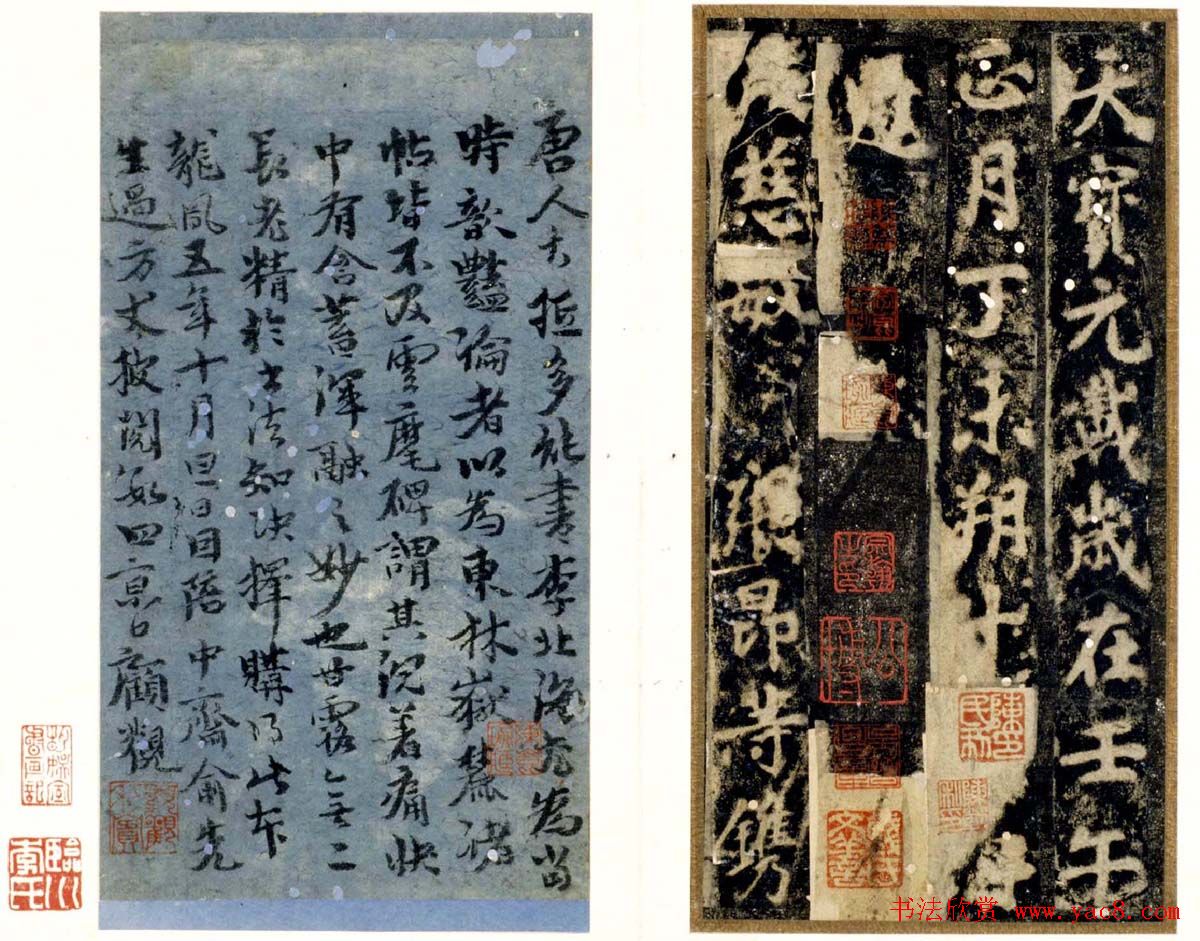 天寶元載歲在壬午
正月丁未朔十
慧敏 張昂等鐫
唐人大抵多能書李北海尤為當
時歆豔論者以為東林嶽麓諸
帖皆不及雲麾碑謂其沉着痛快
中有含蓄渾融之妙也甘露無二
長老精於書法知決擇購得此本
龍鳳五年十月四日因陪中齋俞先
生過方丈披閱數四京口顧觀
臨川李氏
书法欣赏 www.yac8.com